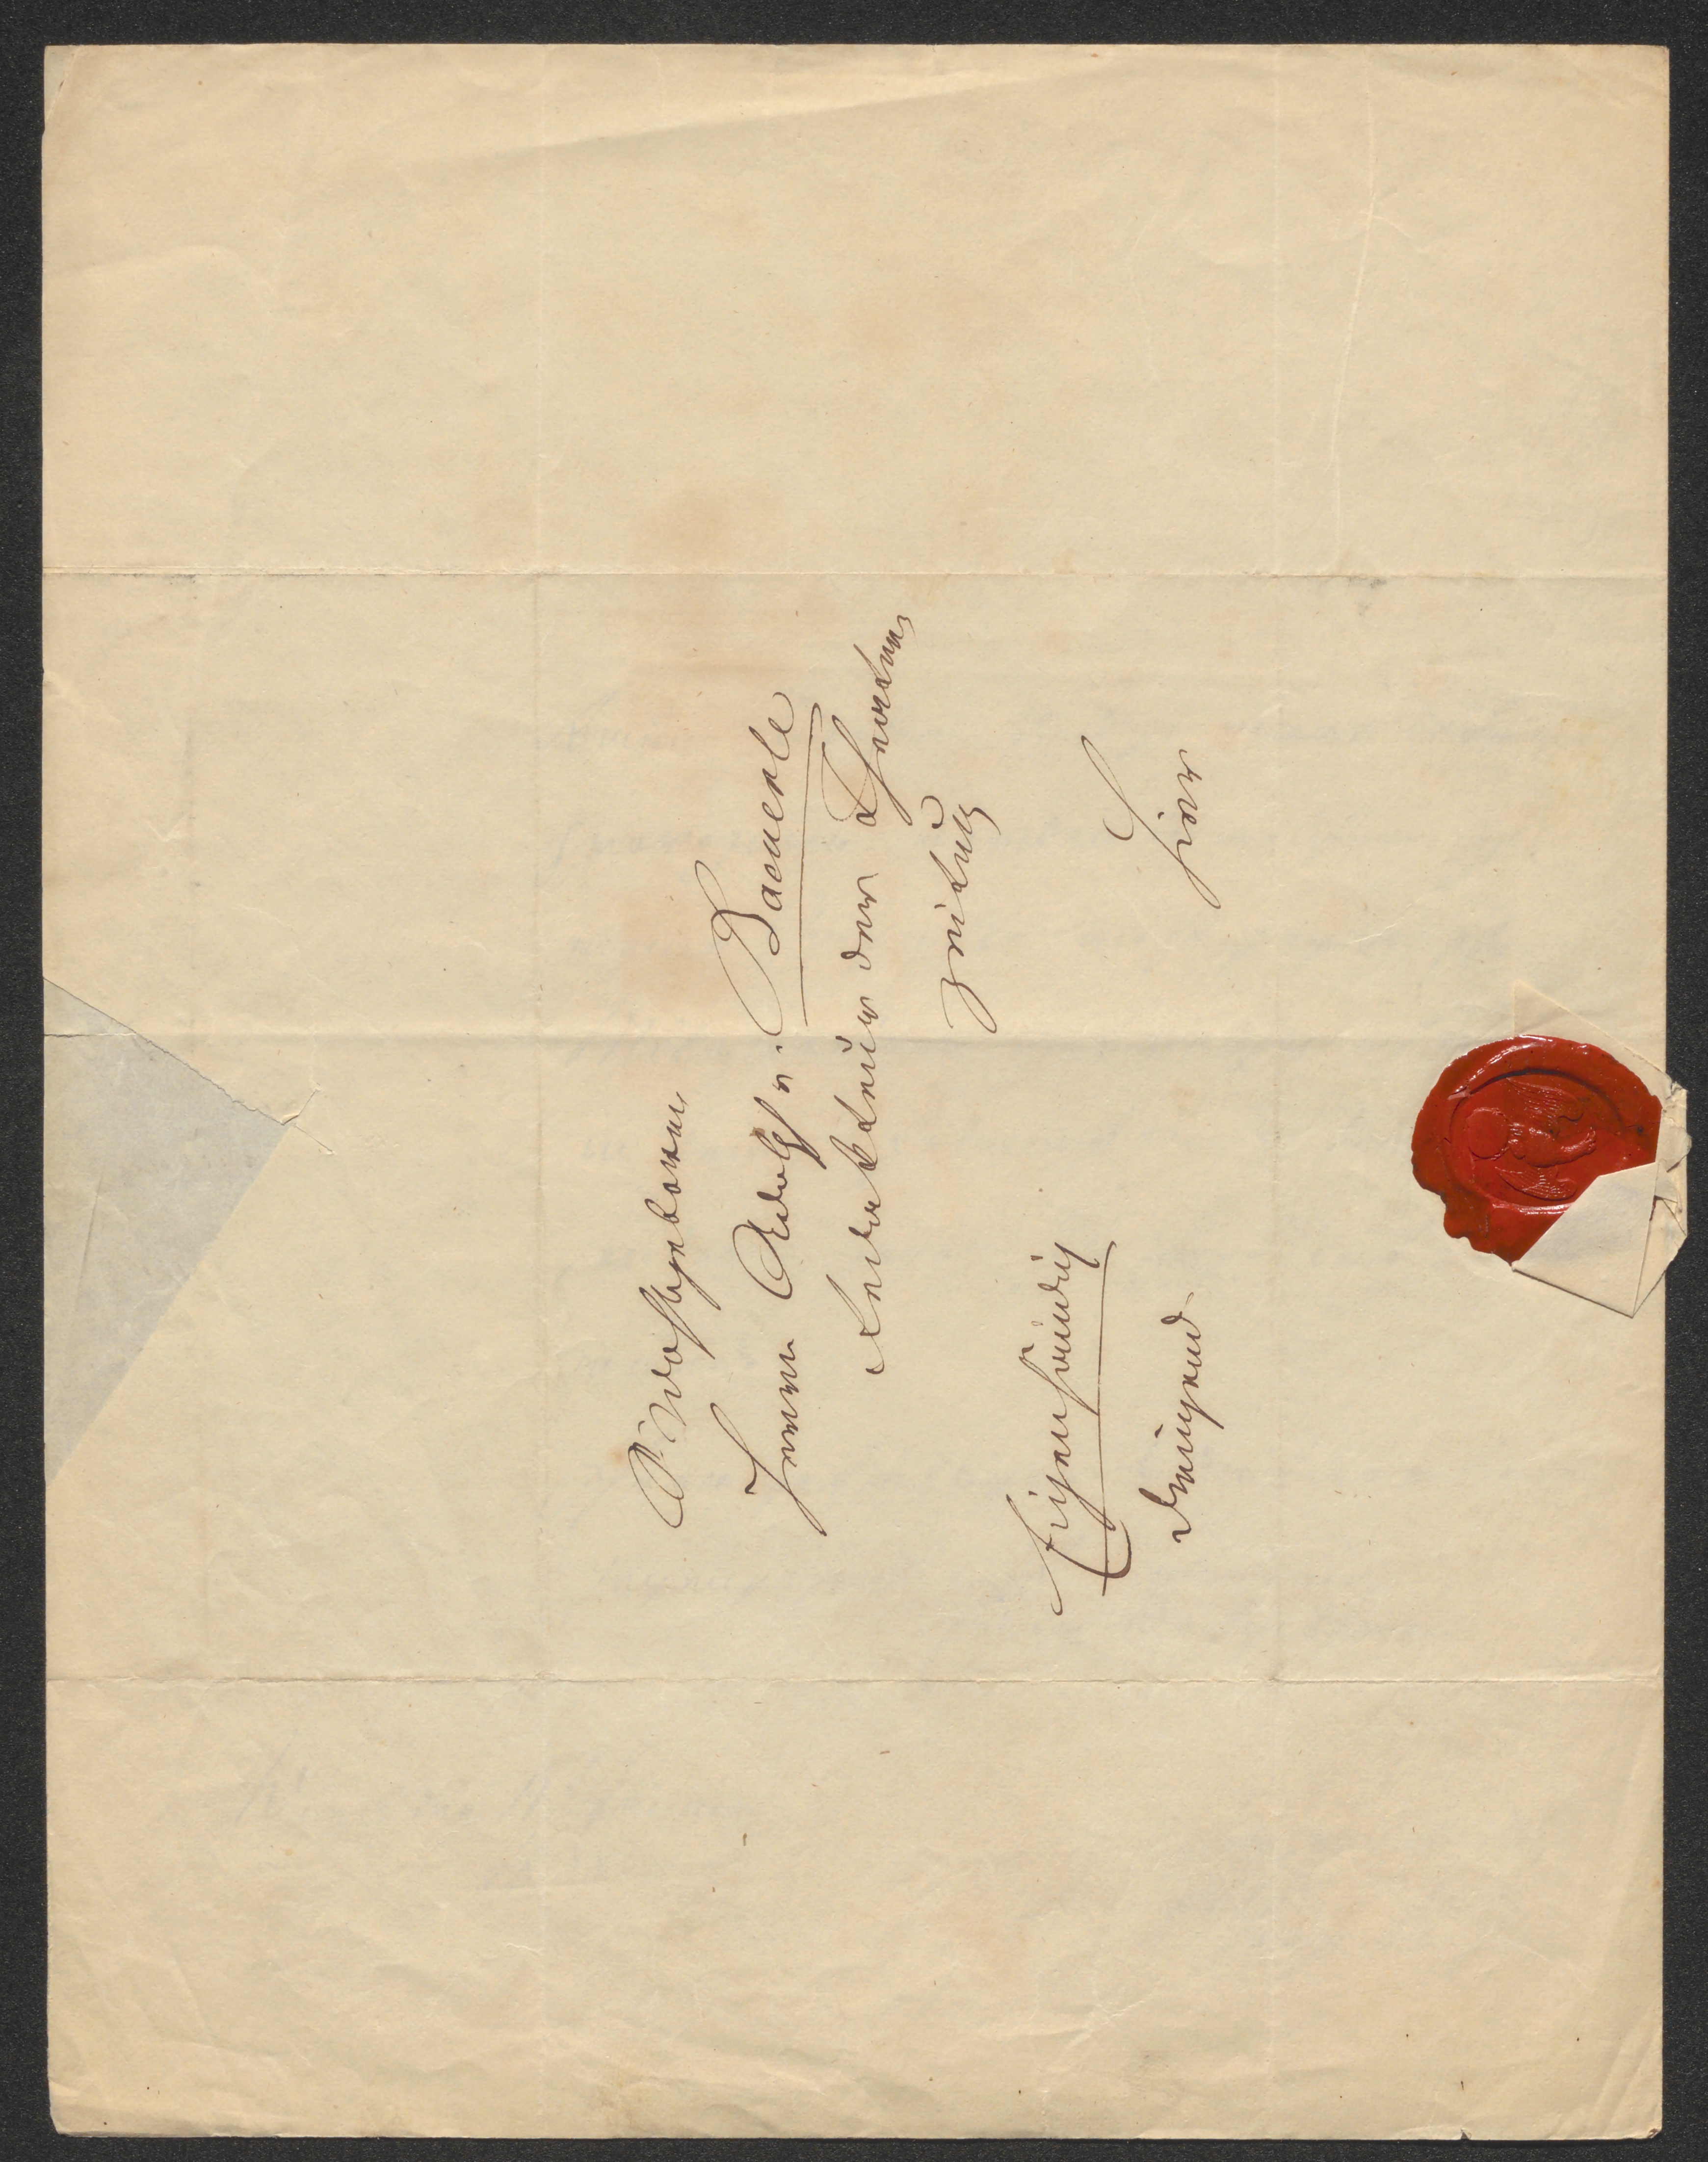 Sr Wohlgeboren
Herrn Adolph v. Baeuerle
Redakteur der Theater
zeitung
Eigenhändig
dringend
Hier